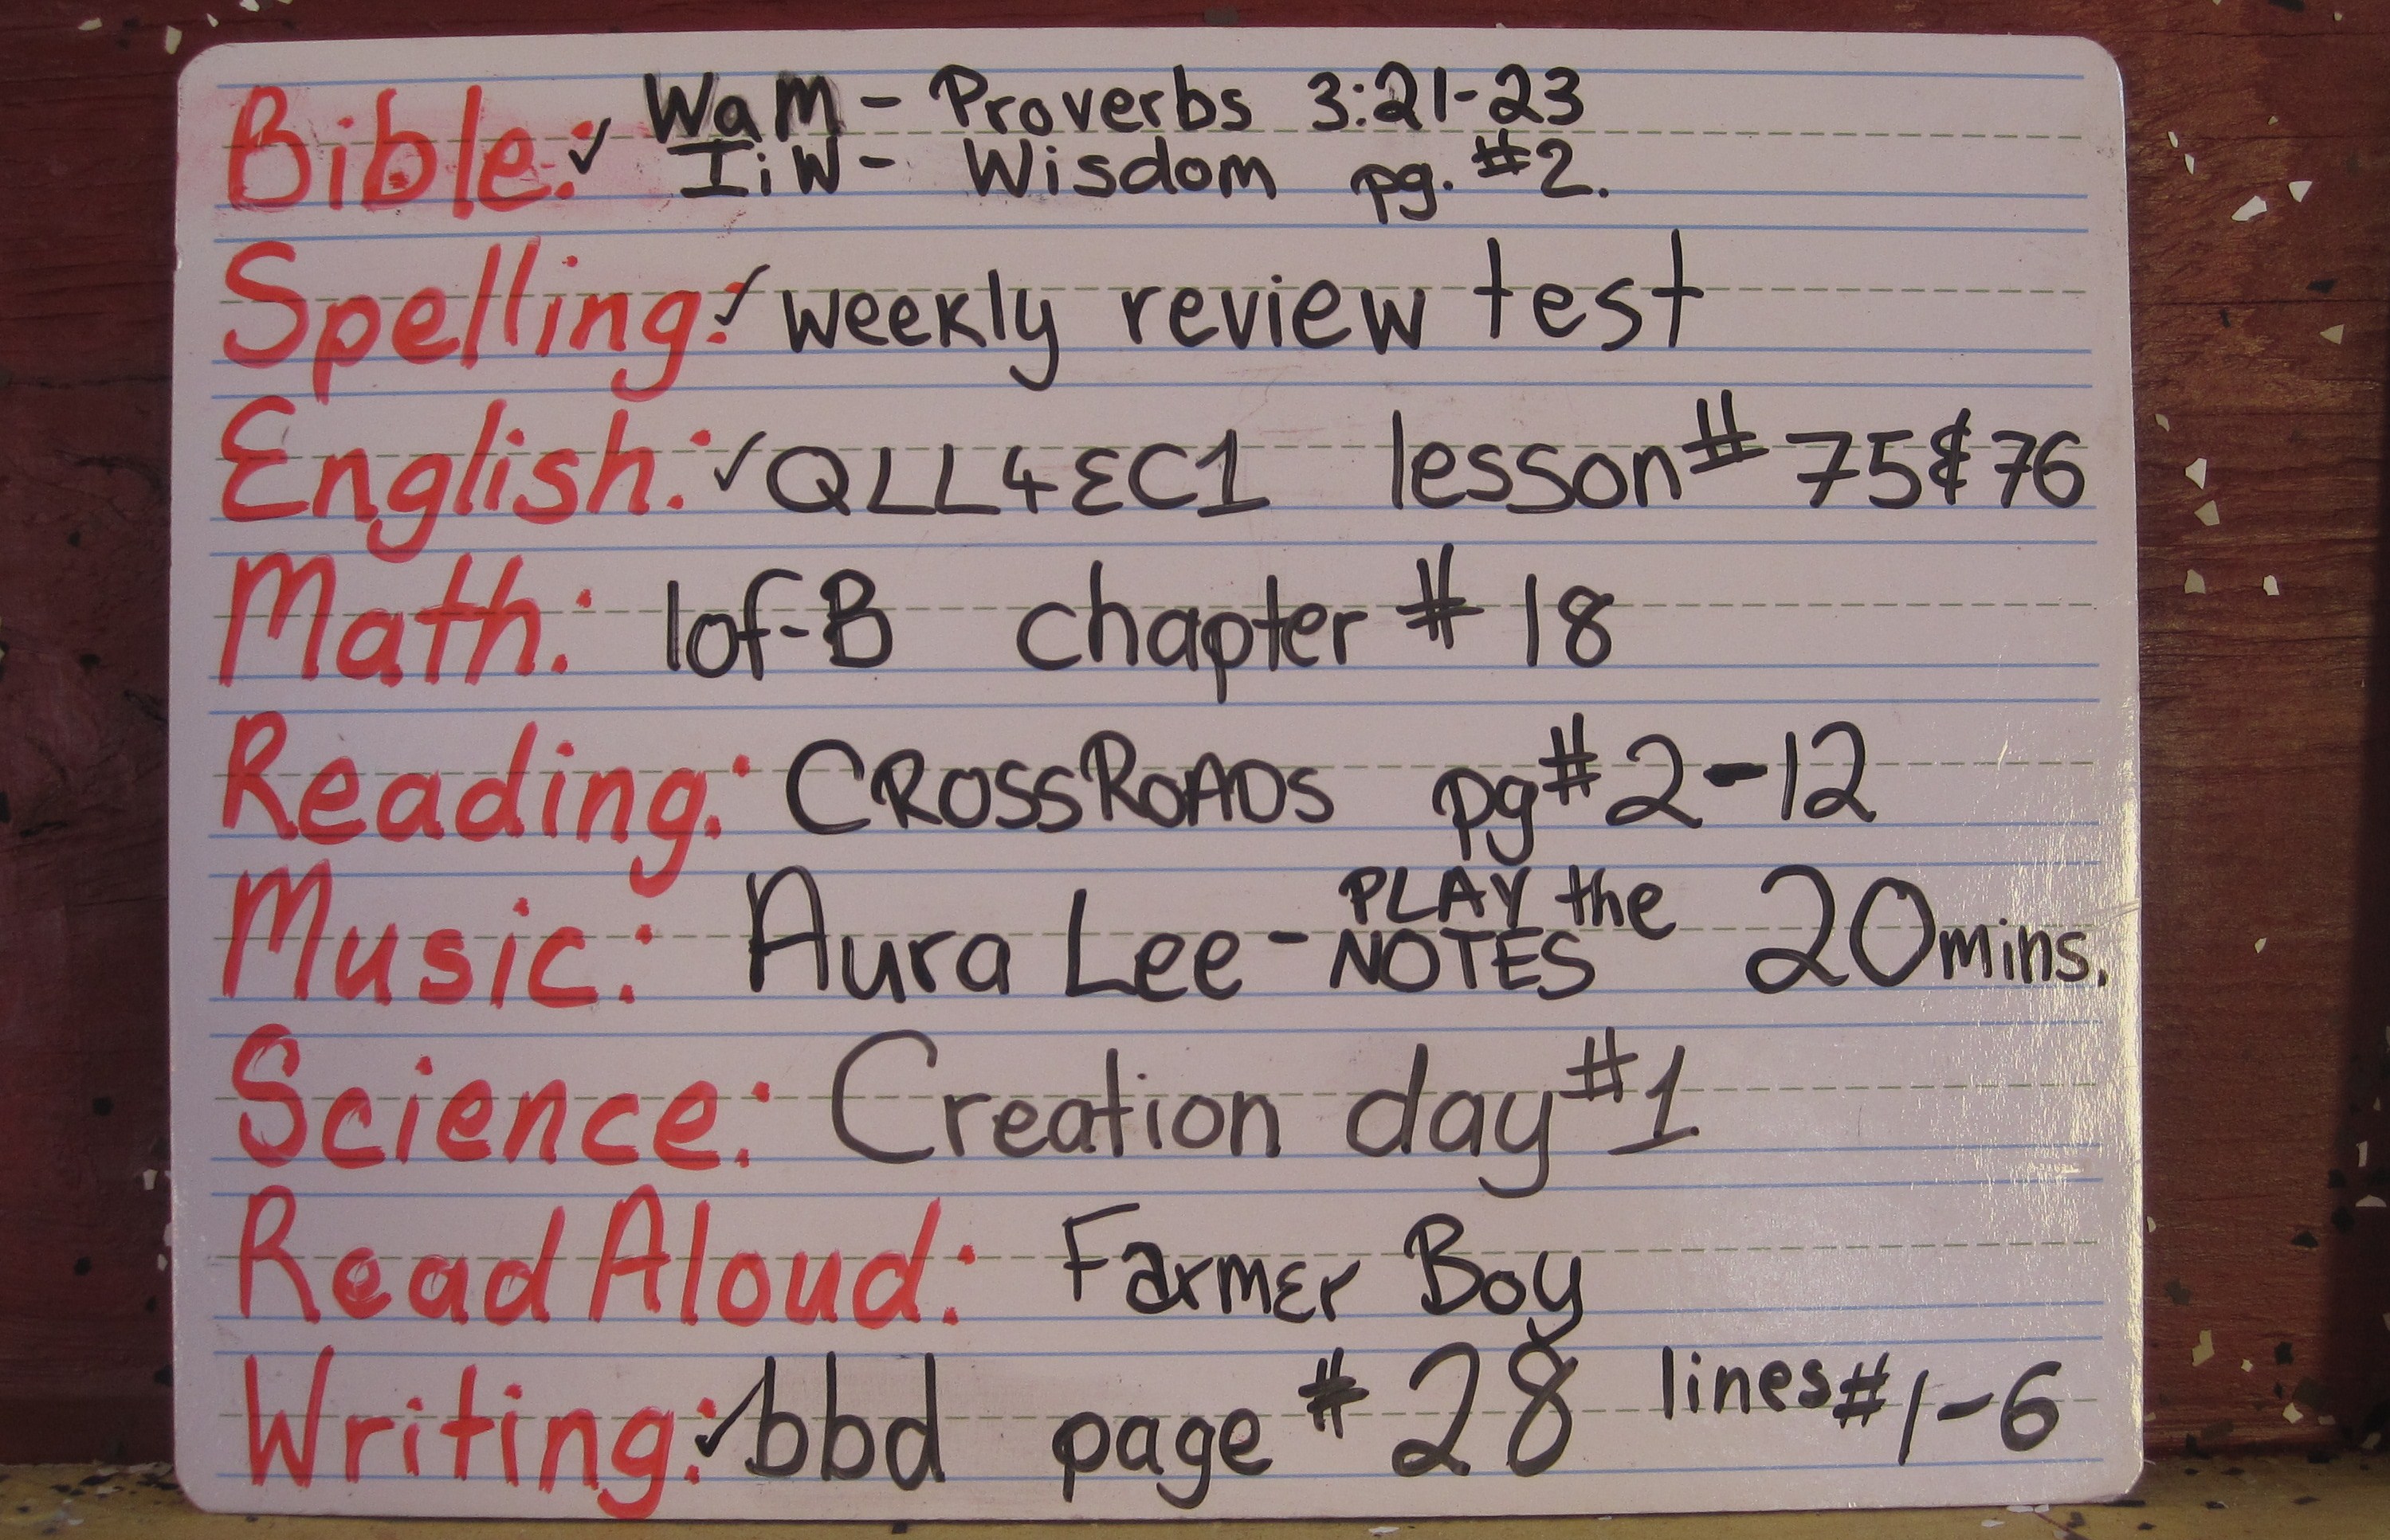 Bible: ✓ WaM - Proverbs 3:21-23
IiW - Wisdom pg. #2.
Spelling: ✓ weekly review test
English: ✓ QLL4EC1 lesson # 75 & 76
Math: lof-B chapter # 18
Reading: CROSSROADS pg # 2-12
Music: Aura Lee - PLAY the NOTES 20 mins.
Science: Creation day #1
Read Aloud: Farmer Boy
Writing: ✓ bbd page # 28 lines # 1-6